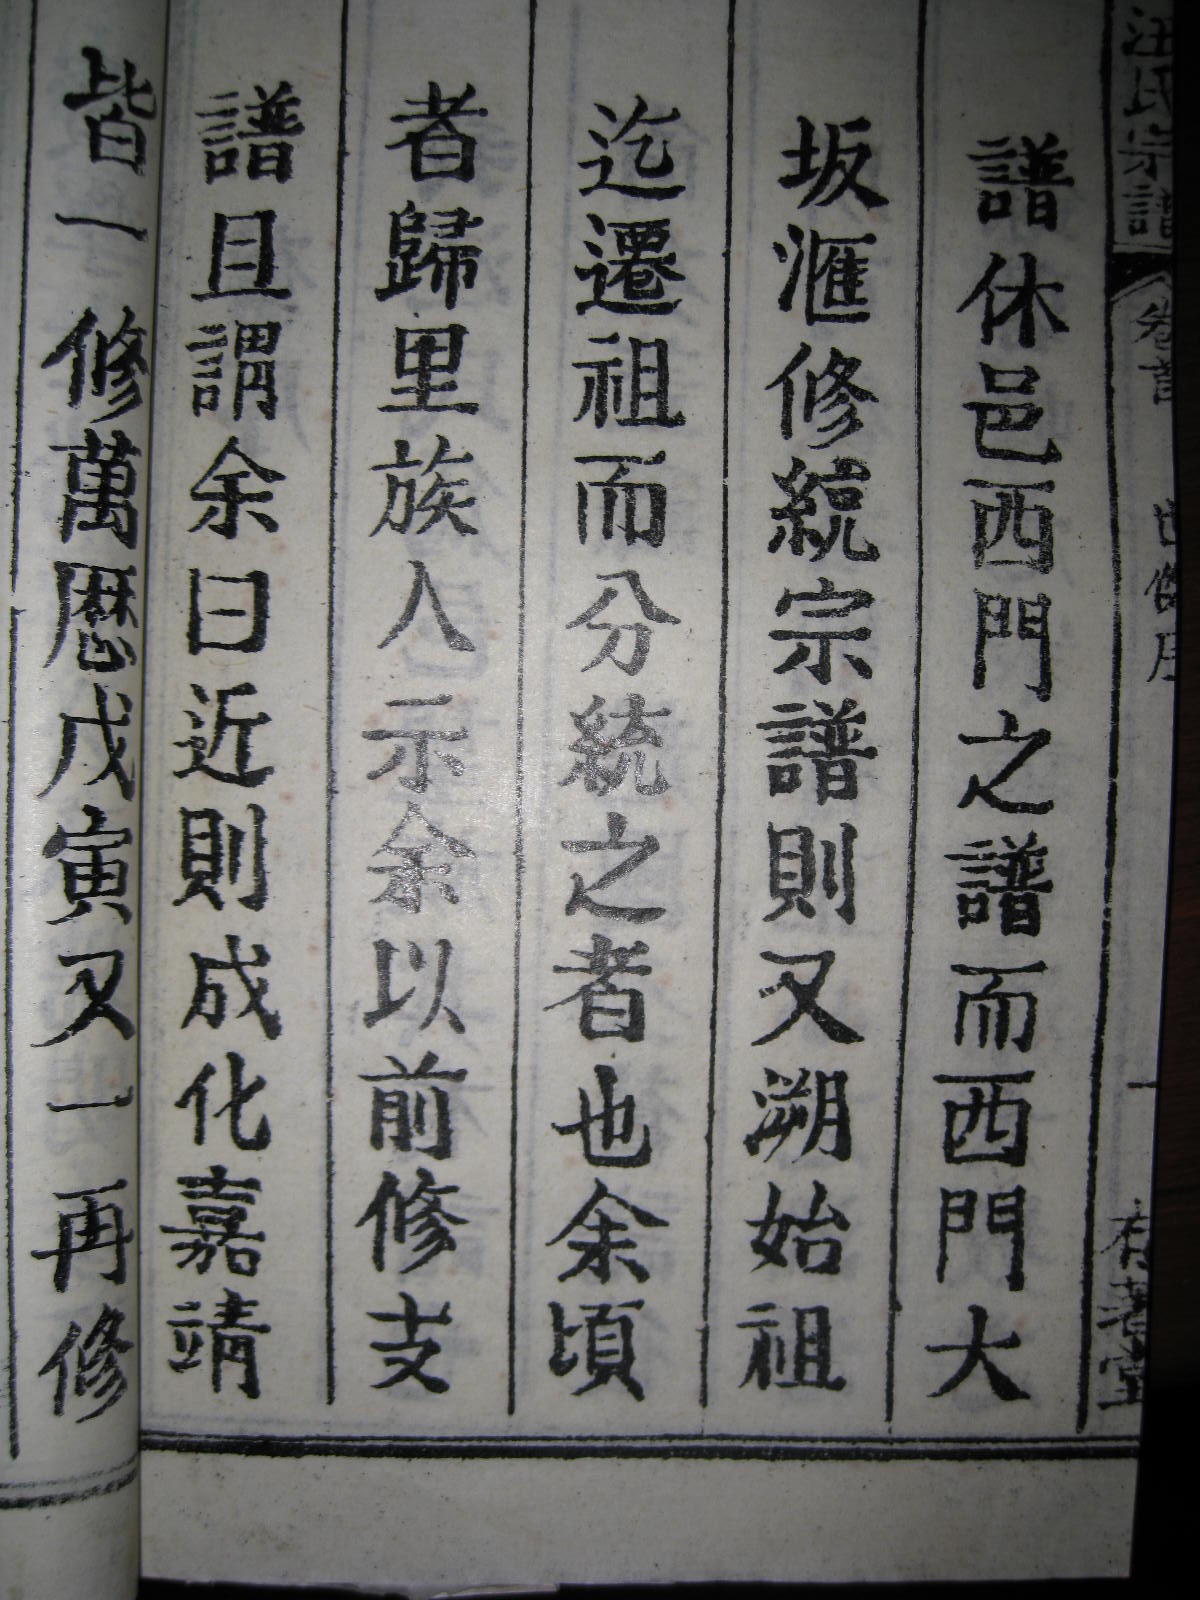 汪氏宗譜
卷首
一
譜休邑西門之譜而西門大
坂滙修統宗譜則又溯始祖
迄遷祖而分統之者也余頃
者歸里族人示余以前修支
譜且謂余曰近則成化嘉靖
皆一修萬厯戊寅又一再修